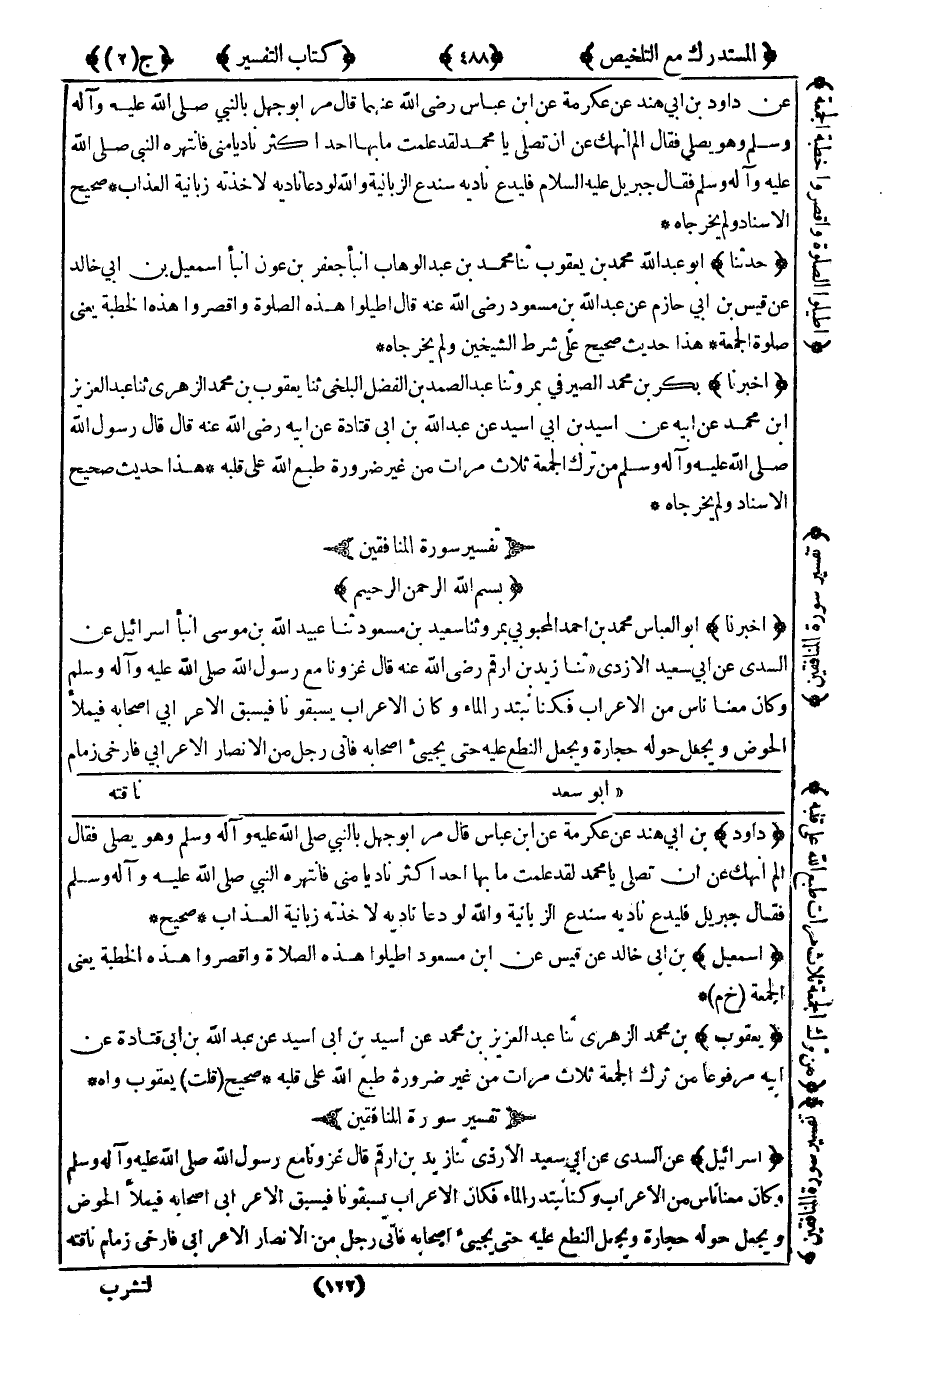 ﴿ المستدرك مع التلخيص ﴾ ﴿٤٨٨﴾ ﴿ كتاب التفسير ﴾ ﴿ج(٢)﴾
عن داود بن ابي هند عن عكرمة عن ابن عباس رضى الله عنهما قال مر ابو جهل بالنبي صلى الله عليه وآله
وسلم وهو يصلي فقال الم انهك عن ان تصلى يا محمد لقد علمت ما بها احد ا كثر ناديا منى فانتهره النبي صلى الله
عليه وآله وسلم فقال جبريل عليه السلام فليدع ناديه سندع الزبانية والله لو دعا ناديه لاخذته زبانية العذاب * صحيح
الاسناد ولم يخرجاه *
﴿ حدثنا ﴾ ابو عبدالله محمد بن يعقوب ثنا محمد بن عبدالوهاب انبأ جعفر بن عون انبأ اسمعيل بن ابي خالد
عن قيس بن ابي حازم عن عبدالله بن مسعود رضى الله عنه قال اطيلوا هذه الصلوة واقصروا هذه الخطبة يعنى
صلوة الجمعة * هذا حديث صحيح على شرط الشيخين ولم يخرجاه *
﴿ اخبرنا ﴾ بكر بن محمد الصيرفي بمرو ثنا عبدالصمد بن الفضل البلخى ثنا يعقوب بن محمد الزهرى ثنا عبدالعزيز
ابن محمد عن ابيه عن اسيد بن ابي اسيد عن عبدالله بن ابى قتادة عن ابيه رضى الله عنه قال قال رسول الله
صلى الله عليه وآله وسلم من ترك الجمعة ثلاث مرات من غير ضرورة طبع الله على قلبه * هذا حديث صحيح
الاسناد ولم يخرجاه *
تفسير سورة المنافقين
﴿ بسم الله الرحمن الرحيم ﴾
﴿ اخبرنا ﴾ ابو العباس محمد بن احمد المحبوبي بمرو ثنا سعيد بن مسعود ثنا عبيد الله بن موسى انبأ اسرائيل عن
السدى عن ابي سعيد الازدى « ثنا زيد بن ارقم رضى الله عنه قال غزونا مع رسول الله صلى الله عليه وآله وسلم
وكان معنا ناس من الاعراب فكنا نبتدر الماء وكان الاعراب يسبقونا فيسبق الاعرابي اصحابه فيملأ
الحوض ويجعل حوله حجارة ويجعل النطع عليه حتى يجيئ اصحابه فأتى رجل من الانصار الاعرابي فارخى زمام
« ابو سعد ناقته
﴿ داود ﴾ بن ابي هند عن عكرمة عن ابن عباس قال مر ابو جهل بالنبي صلى الله عليه وآله وسلم وهو يصلى فقال
الم انهك عن ان تصلى يا محمد لقد علمت ما بها احد اكثر ناديا منى فانتهره النبي صلى الله عليه وآله وسلم
فقال جبريل فليدع ناديه سندع الزبانية والله لو دعا ناديه لاخذته زبانية العذاب * صحيح *
﴿ اسمعيل ﴾ بن ابى خالد عن قيس عن ابن مسعود اطيلوا هذه الصلاة واقصروا هذه الخطبة يعنى
الجمعة (خ م) *
﴿ يعقوب ﴾ بن محمد الزهرى ثنا عبدالعزيز بن محمد عن اسيد بن ابى اسيد عن عبدالله بن ابى قتادة عن
ابيه مرفوعا من ترك الجمعة ثلاث مرات من غير ضرورة طبع الله على قلبه * صحيح (قلت) يعقوب واه *
تفسير سورة المنافقين
﴿ اسرائيل ﴾ عن السدى عن ابي سعيد الازدى ثنا زيد بن ارقم قال غزونا مع رسول الله صلى الله عليه وآله وسلم
وكان معنا ناس من الاعراب وكنا نبتدر الماء فكان الاعراب يسبقونا فيسبق الاعرابى اصحابه فيملأ الحوض
ويجعل حوله حجارة ويجعل النطع عليه حتى يجيئ اصحابه فأتى رجل من الانصار الاعرابى فارخى زمام ناقته
(١٢٢) لتشرب
﴿ اطيلوا الصلوة واقصروا خطبة الجمعة ﴾
﴿ تفسير سورة المنافقين ﴾
﴿ من ترك الجمعة ثلاث مرات طبع الله على قلبه ﴾
﴿ تفسير سورة المنافقين ﴾